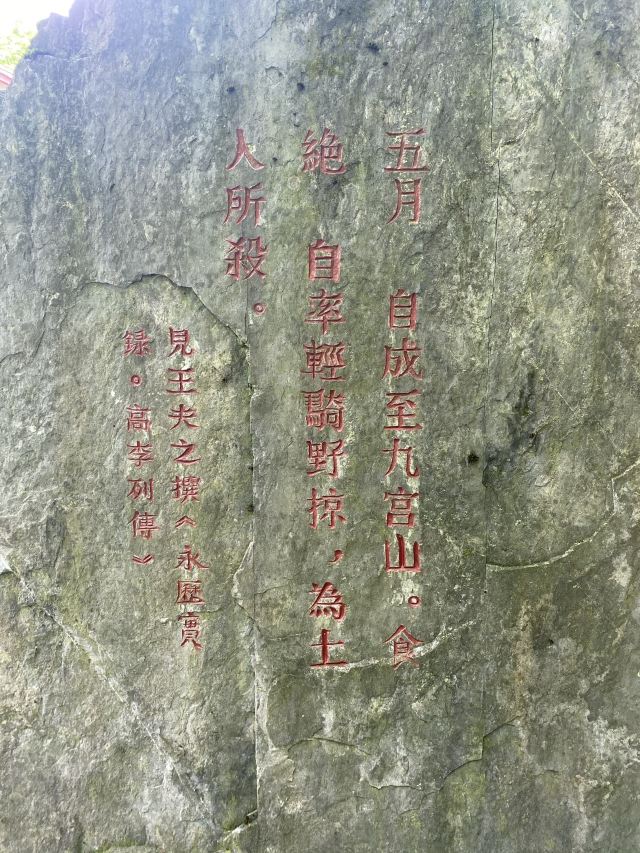 五月　自成至九宫山。食
絶　自率輕騎野掠，為土
人所殺。
見王夫之撰《永歷實
録。高李列傳》